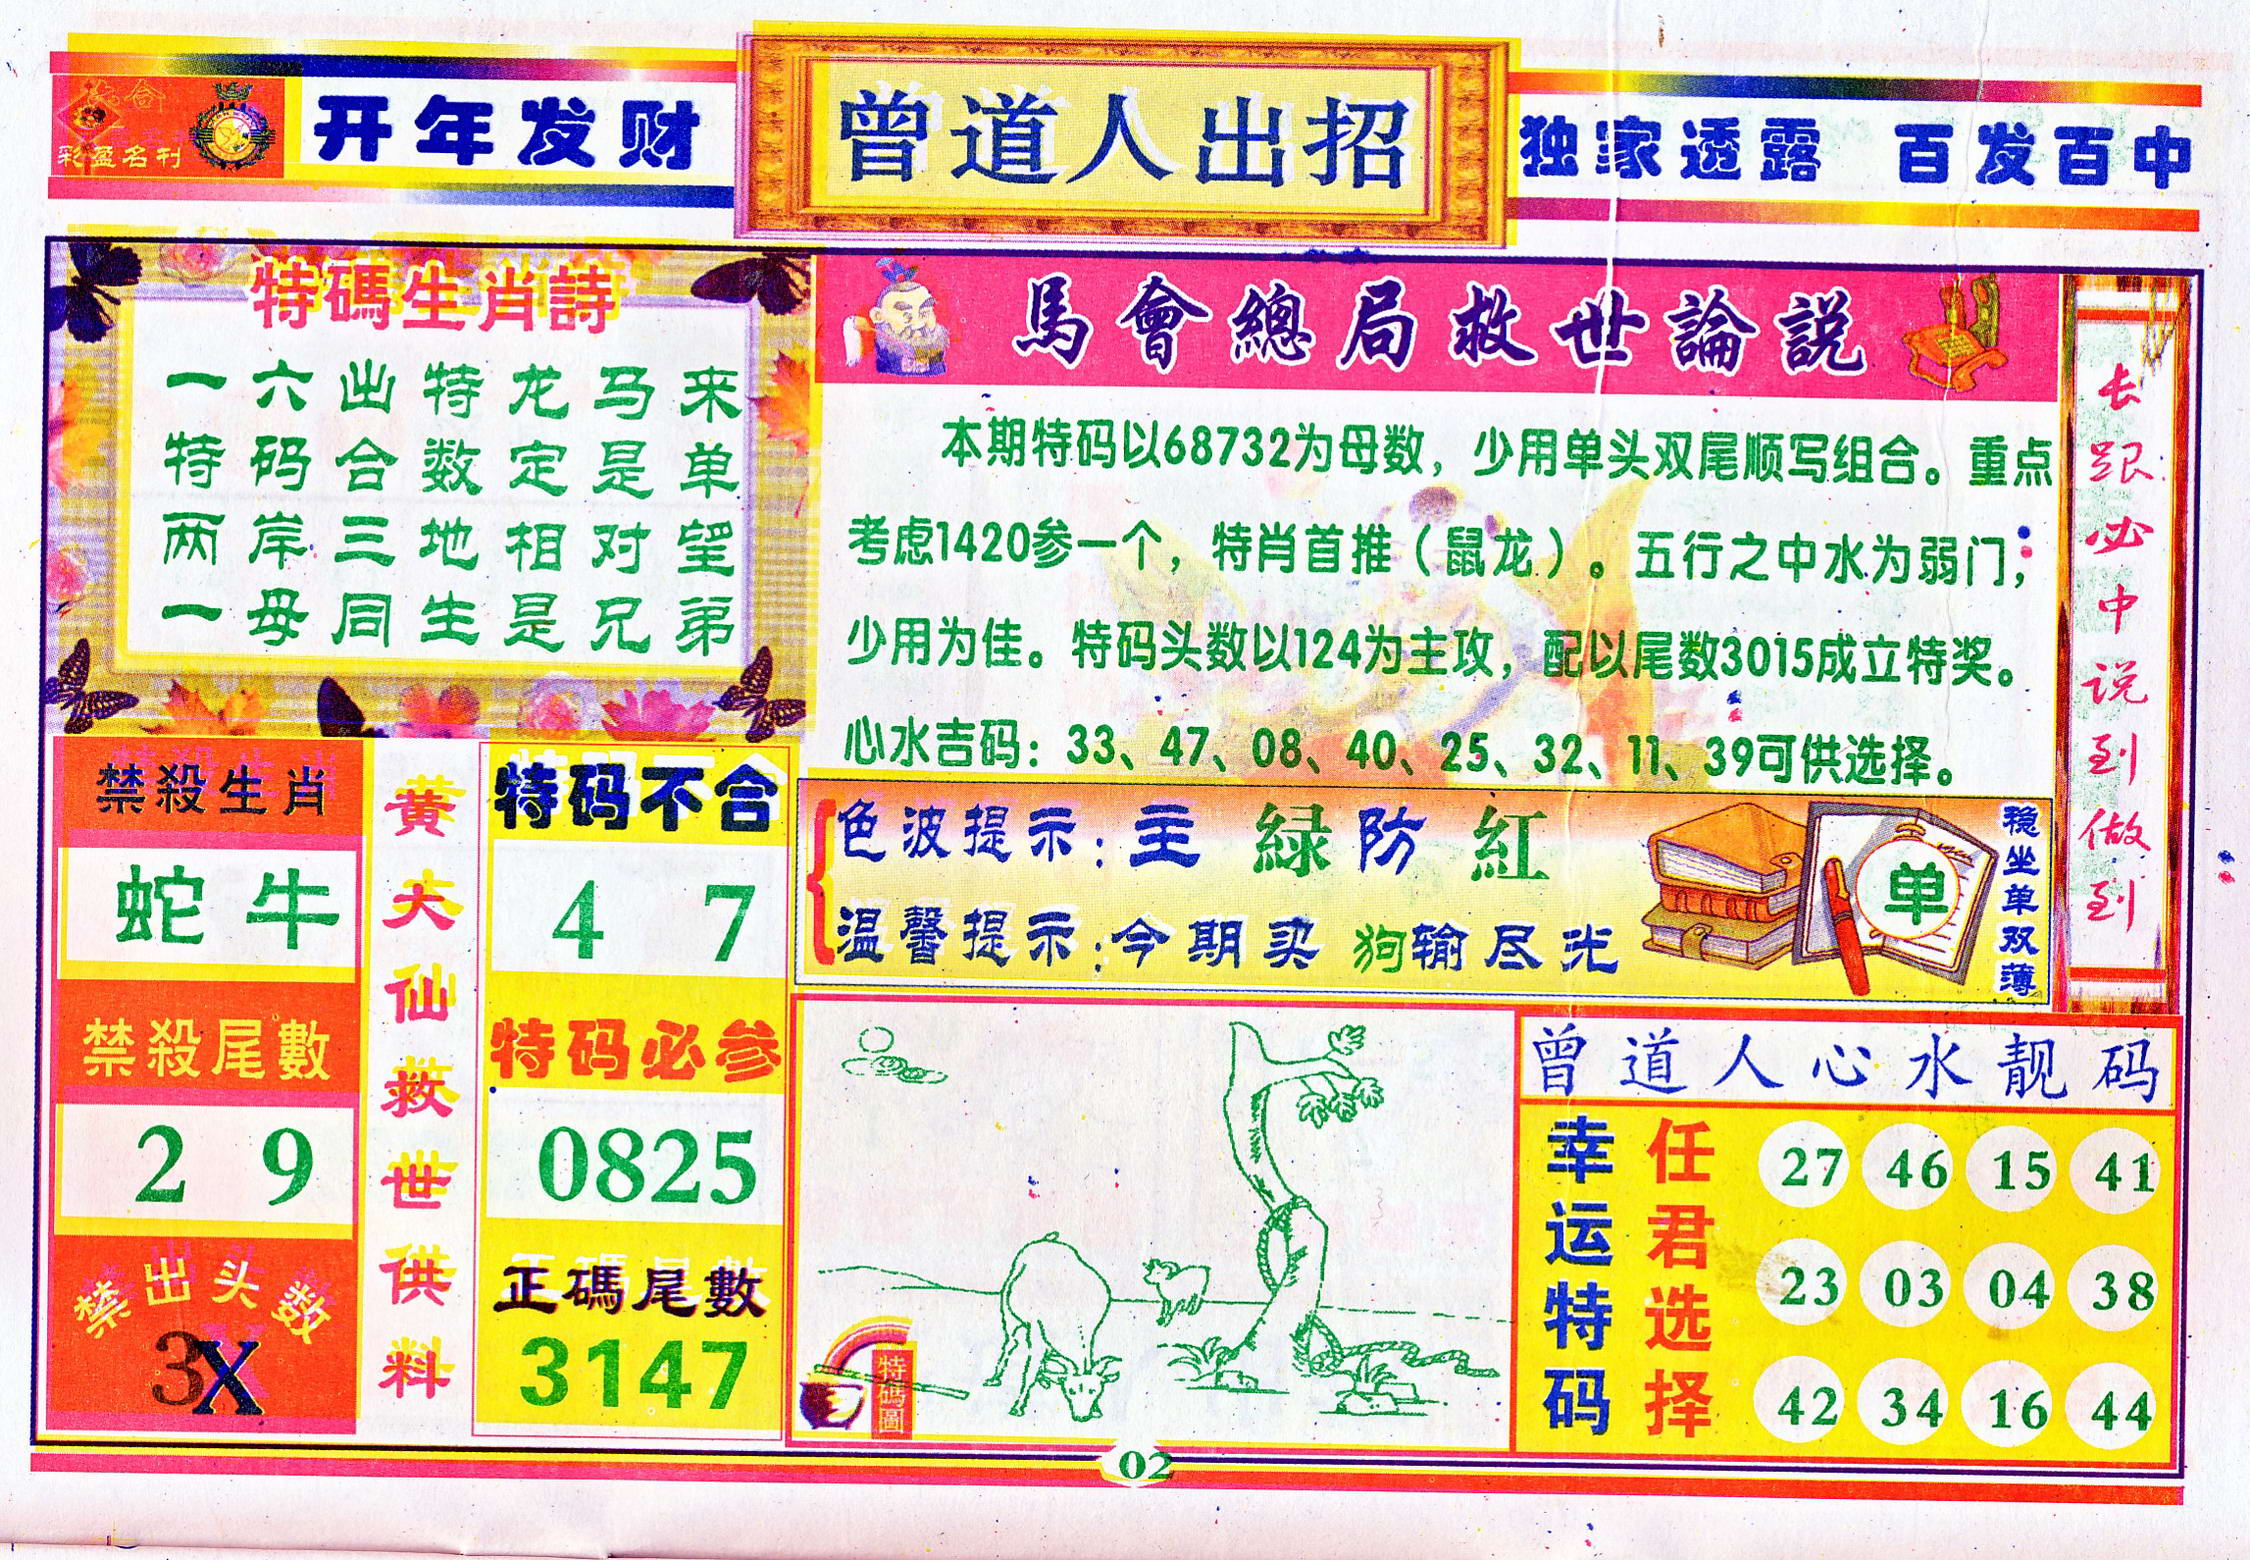 彩盈名刊
开年发财
曾道人出招
独家透露 百发百中
特碼生肖詩
一六出特龙马来
特码合数定是单
两岸三地相对望
一母同生是兄弟
馬會總局救世論説
本期特码以68732为母数，少用单头双尾顺写组合。重点
考虑1420参一个，特肖首推（鼠龙）。五行之中水为弱门，
少用为佳。特码头数以124为主攻，配以尾数3015成立特奖。
心水吉码：33、47、08、40、25、32、11、39可供选择。
长跟必中说到做到
色波提示：主 緑 防 紅
温馨提示：今期买 狗输尽光
单
稳坐单双薄
禁殺生肖
蛇 牛
禁殺尾數
2 9
禁出头数
3X
黄大仙救世供料
特码不合
4 7
特码必参
0825
正碼尾數
3147
特碼圖
曾道人心水靓码
幸运特码
任君选择
27 46 15 41
23 03 04 38
42 34 16 44
02